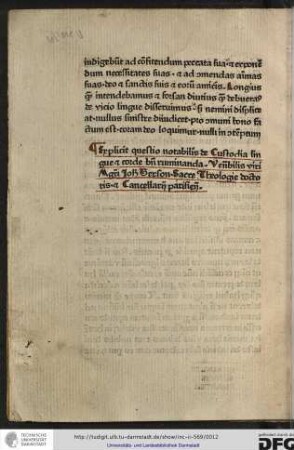 indigebūt ad cōfitendum peccata sua · et exponē
dum necessitates suas · et ad cōmendas aīmas
suas · deo et sanctis suis et eorū amicis. Longius
qͫ intendebamus et forsan diutius qͫ debueras
de vicio lingue disseruimus · si nemini displice
at · nullus sinistre diiudicet · pro omni bono fa
ctum est · coram deo loquimur · nulli in
Explicit questio notabilis de Custodia lin
gue et corde bn̄ ruminanda. Venerabilis viri
Magr̄i Joh̄ Gerson · Sacre Theologie docto
ris · et Cancellarij parisien̄.
http://tudigit.ulb.tu-darmstadt.de/show/inc-ii-569/0012
Universitäts- und Landesbibliothek Darmstadt
TECHNISCHE
UNIVERSITÄT
DARMSTADT
DFG